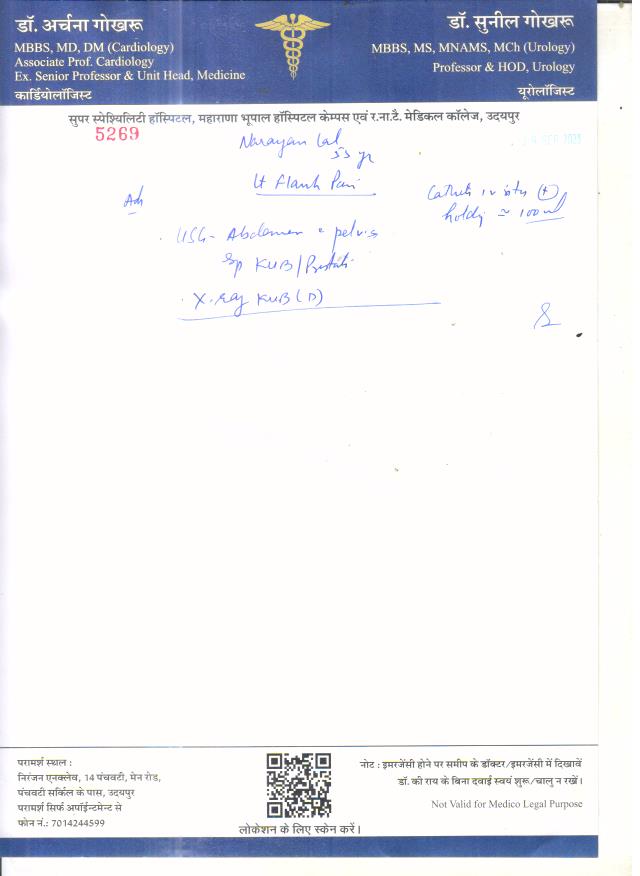 डॉ. अर्चना गोखरू
MBBS, MD, DM (Cardiology)
Associate Prof. Cardiology
Ex. Senior Professor & Unit Head, Medicine
कार्डियोलॉजिस्ट
डॉ. सुनील गोखरू
MBBS, MS, MNAMS, MCh (Urology)
Professor & HOD, Urology
यूरोलॉजिस्ट
सुपर स्पेश्यिलिटी हॉस्पिटल, महाराणा भूपाल हॉस्पिटल केम्पस एवं र.ना.टै. मेडिकल कॉलेज, उदयपुर
5269
Narayan Lal
55 yr
SEP
Lt Flank Pain
Adv
holdy ≈ 100 ml
USG - Abdomen & pelvis
Sp KUB/Prostate
X-ray KUB (D)
परामर्श स्थल :
निरंजन एनक्लेव, 14 पंचवटी, मेन रोड,
पंचवटी सर्किल के पास, उदयपुर
परामर्श सिर्फ अपॉईन्टमेन्ट से
फोन नं.: 7014244599
लोकेशन के लिए स्केन करें।
नोट : इमरजेंसी होने पर समीप के डॉक्टर/इमरजेंसी में दिखावें
डॉ. की राय के बिना दवाई स्वयं शुरू/चालु न रखें।
Not Valid for Medico Legal Purpose